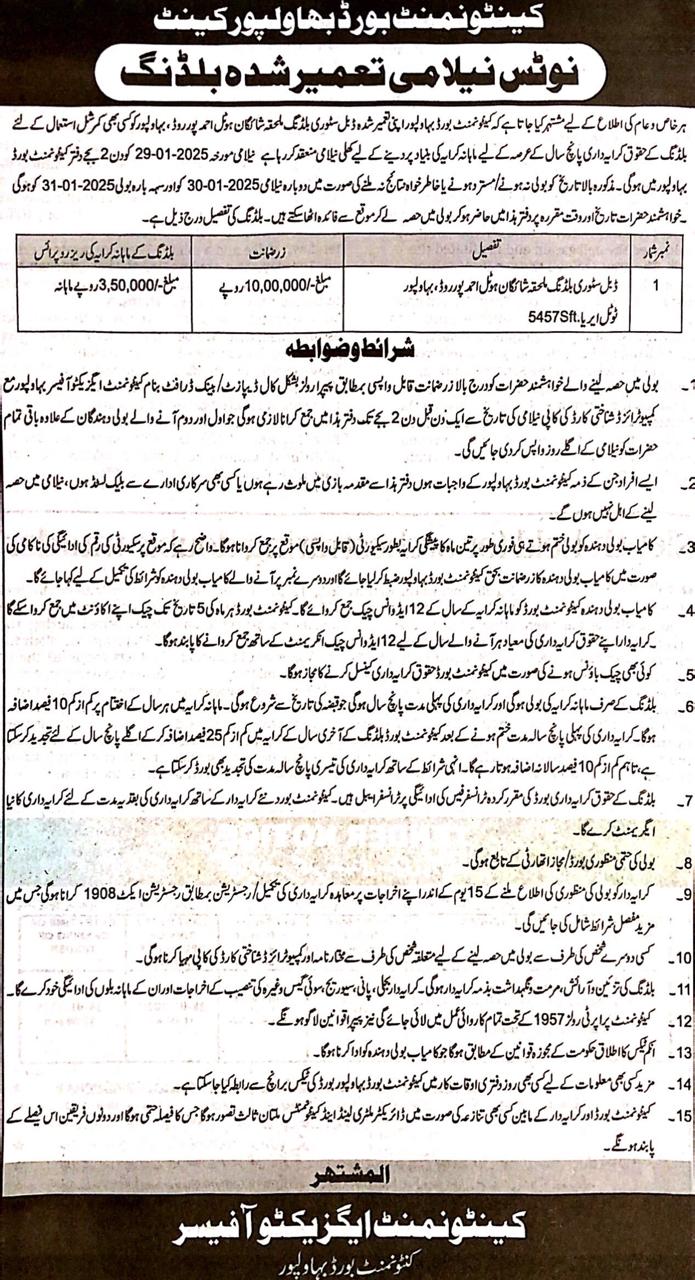 کینٹونمنٹ بورڈ بہاولپور کینٹ
نوٹس نیلامی تعمیر شدہ بلڈنگ
ہر خاص و عام کی اطلاع کے لیے مشتہر کیا جاتا ہے کہ کینٹونمنٹ بورڈ بہاولپور اپنی تعمیر شدہ ڈبل سٹوری بلڈنگ ملحقہ شائگان ہوٹل احمد پور روڈ، بہاولپور کو کسی بھی کمرشل استعمال کے لئے
بلڈنگ کے حقوق کرایہ داری پانچ سال کے عرصہ کے لیے ماہانہ کرایہ کی بنیاد پر دینے کے لیے کھلی نیلامی منعقد کر رہا ہے نیلامی مورخہ 2025-01-29 کو دن 2 بجے دفتر کینٹونمنٹ بورڈ
بہاولپور میں ہوگی۔ مذکورہ بالا تاریخ کو بولی نہ ہونے/مسترد ہونے یا خاطر خواہ نتائج نہ ملنے کی صورت میں دوبارہ نیلامی 2025-01-30 کو اور سہہ بارہ بولی 2025-01-31 کو ہوگی
۔ خواہشمند حضرات تاریخ اور وقت مقررہ پر دفتر ہذا میں حاضر ہو کر بولی میں حصہ لے کر موقع سے فائدہ اٹھا سکتے ہیں۔ بلڈنگ کی تفصیل درج ذیل ہے۔
نمبر شمار تفصیل زر ضمانت بلڈنگ کے ماہانہ کرایہ کی ریزرو پرائس
1 ڈبل سٹوری بلڈنگ ملحقہ شائگان ہوٹل احمد پور روڈ، بہاولپور مبلغ -/10,00,000 روپے مبلغ -/3,50,000 روپے ماہانہ
ٹوٹل ایریا۔ 5457Sft.
شرائط و ضوابط
1۔ بولی میں حصہ لینے والے خواہشمند حضرات کو درج بالا زر ضمانت قابل واپسی بمطابق پیپرا رولز بشکل کال ڈیپازٹ/بینک ڈرافٹ بنام کینٹونمنٹ ایگزیکٹو آفیسر بہاولپور مع
کمپیوٹرائزڈ شناختی کارڈ کی کاپی نیلامی کی تاریخ سے ایک دن قبل دن 2 بجے تک دفتر ہذا میں جمع کرانا لازمی ہوگی جو اول اور دوم آنے والے بولی دہندگان کے علاوہ باقی تمام
حضرات کو نیلامی کے اگلے روز واپس کر دی جائیں گی۔
2۔ ایسے افراد جن کے ذمہ کینٹونمنٹ بورڈ بہاولپور کے واجبات ہوں دفتر ہذا سے مقدمہ بازی میں ملوث رہے ہوں یا کسی بھی سرکاری ادارے سے بلیک لسٹڈ ہوں، نیلامی میں حصہ
لینے کے اہل نہیں ہوں گے۔
3۔ کامیاب بولی دہندہ کو بولی ختم ہوتے ہی فوری طور پر تین ماہ کا پیشگی کرایہ بطور سیکیورٹی (قابل واپسی) موقع پر جمع کروانا ہوگا۔ واضح رہے کہ موقع پر سیکورٹی کی رقم کی ادائیگی کی ناکامی کی
صورت میں کامیاب بولی دہندہ کا زر ضمانت بحق کینٹونمنٹ بورڈ بہاولپور ضبط کر لیا جائے گا اور دوسرے نمبر پر آنے والے کامیاب بولی دہندہ کو شرائط کی تکمیل کے لیے کہا جائے گا۔
4۔ کامیاب بولی دہندہ کینٹونمنٹ بورڈ کو ماہانہ کرایہ کے سال کے 12 ایڈوانس چیک جمع کروائے گا۔ کینٹونمنٹ بورڈ ہر ماہ کی 5 تاریخ تک چیک اپنے اکاؤنٹ میں جمع کروا سکے گا
۔ کرایہ دار اپنے حقوق کرایہ داری کی معیاد ہر آنے والے سال کے لیے 12 ایڈوانس چیک ایگریمنٹ کے ساتھ جمع کروانے کا پابند ہوگا۔
5۔ کوئی بھی چیک باؤنس ہونے کی صورت میں کینٹونمنٹ بورڈ حقوق کرایہ داری کینسل کرنے کا مجاز ہوگا۔
6۔ بلڈنگ کے صرف ماہانہ کرایہ کی بولی ہوگی اور کرایہ داری کی پہلی مدت پانچ سال ہوگی جو قبضہ کی تاریخ سے شروع ہوگی۔ ماہانہ کرایہ میں ہر سال کے اختتام پر کم از کم 10 فیصد اضافہ
ہوگا۔ کرایہ داری کی پہلی پانچ سالہ مدت ختم ہونے کے بعد کینٹونمنٹ بورڈ بلڈنگ کے آخری سال کے کرایہ میں کم از کم 25 فیصد اضافہ کر کے اگلے پانچ سال کے لئے تجدید کر سکتا
ہے، تاہم کم از کم 10 فیصد سالانہ اضافہ ہوتا رہے گا۔ انہی شرائط کے ساتھ کرایہ داری کی تیسری پانچ سالہ مدت کی تجدید بھی بورڈ کر سکتا ہے۔
7۔ بلڈنگ کے حقوق کرایہ داری بورڈ کی مقرر کردہ ٹرانسفر فیس کی ادائیگی پر ٹرانسفر ایبل ہیں۔ کینٹونمنٹ بورڈ نئے کرایہ دار کے ساتھ کرایہ داری کی بقیہ مدت کے لئے کرایہ داری کا نیا
ایگریمنٹ کرے گا۔
8۔ بولی کی حتمی منظوری بورڈ/مجاز اتھارٹی کے تابع ہوگی۔
9۔ کرایہ دار کو بولی کی منظوری کی اطلاع ملنے کے 15 یوم کے اندر اپنے اخراجات پر معاہدہ کرایہ داری کی تکمیل/رجسٹریشن بمطابق رجسٹریشن ایکٹ 1908 کرانا ہوگی جس میں
مزید مفصل شرائط شامل کی جائیں گی۔
10۔ کسی دوسرے شخص کی طرف سے بولی میں حصہ لینے کے لیے متعلقہ شخص کی طرف سے مختار نامہ اور کمپیوٹرائزڈ شناختی کارڈ کی کاپی مہیا کرنا ہوگی۔
11۔ بلڈنگ کی تزئین و آرائش، مرمت و نگہداشت بذمہ کرایہ دار ہوگی۔ کرایہ دار بجلی، پانی، سیوریج، سوئی گیس وغیرہ کی تنصیب کے اخراجات اور ان کے ماہانہ بلوں کی ادائیگی خود کرے گا۔
12۔ کینٹونمنٹ پراپرٹی رولز 1957 کے تحت تمام کاروائی عمل میں لائی جائے گی نیز پیپرا قوانین لاگو ہونگے۔
13۔ انکم ٹیکس کا اطلاق حکومت کے مجوزہ قوانین کے مطابق ہوگا جو کامیاب بولی دہندہ کو ادا کرنا ہوگا۔
14۔ مزید کسی بھی معلومات کے لیے کسی بھی روز دفتری اوقات کار میں کینٹونمنٹ بورڈ بہاولپور بورڈ کی ٹیکس برانچ سے رابطہ کیا جا سکتا ہے۔
15۔ کینٹونمنٹ بورڈ اور کرایہ دار کے مابین کسی بھی تنازعہ کی صورت میں ڈائریکٹر ملٹری لینڈ اینڈ کینٹونمنٹس ملتان ثالث تصور ہوگا جس کا فیصلہ حتمی ہوگا اور دونوں فریقین اس فیصلے کے
پابند ہونگے۔
المشتہر
کینٹونمنٹ ایگزیکٹو آفیسر
کنٹونمنٹ بورڈ بہاولپور